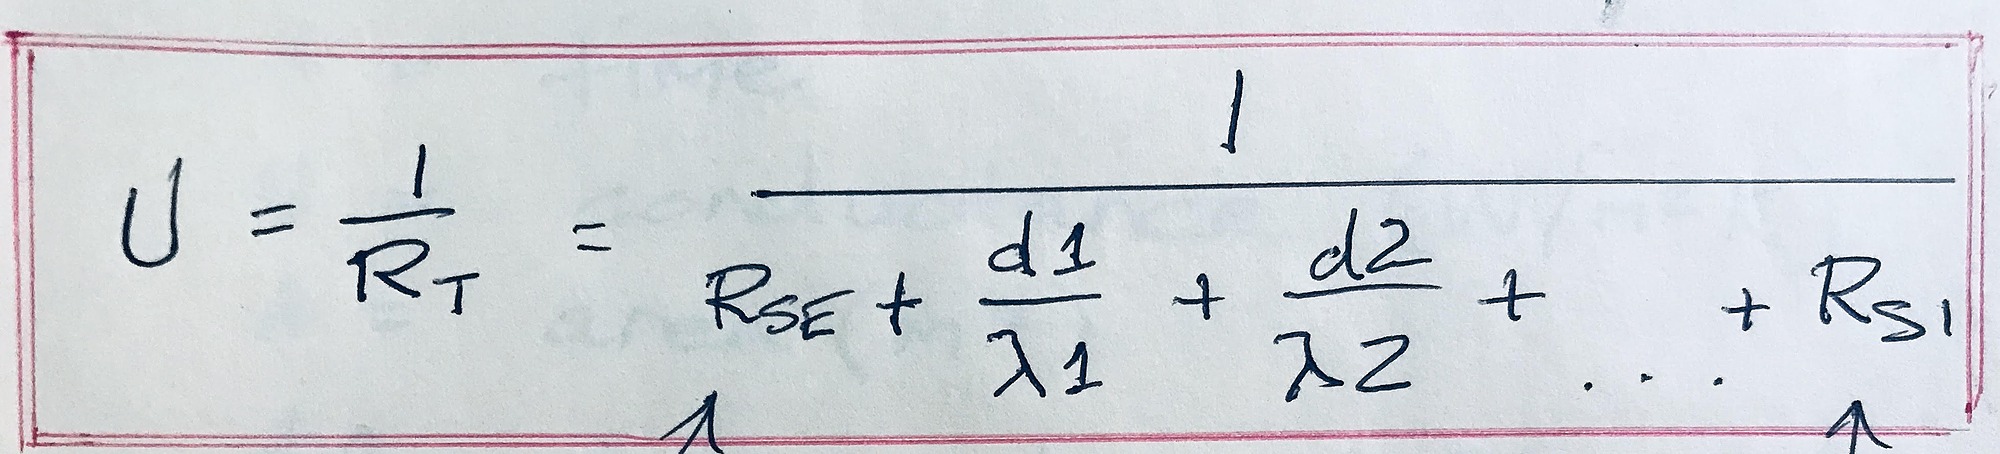 U = 1/R_T = 1/(R_SE + d1/λ1 + d2/λ2 + ... + R_SI)